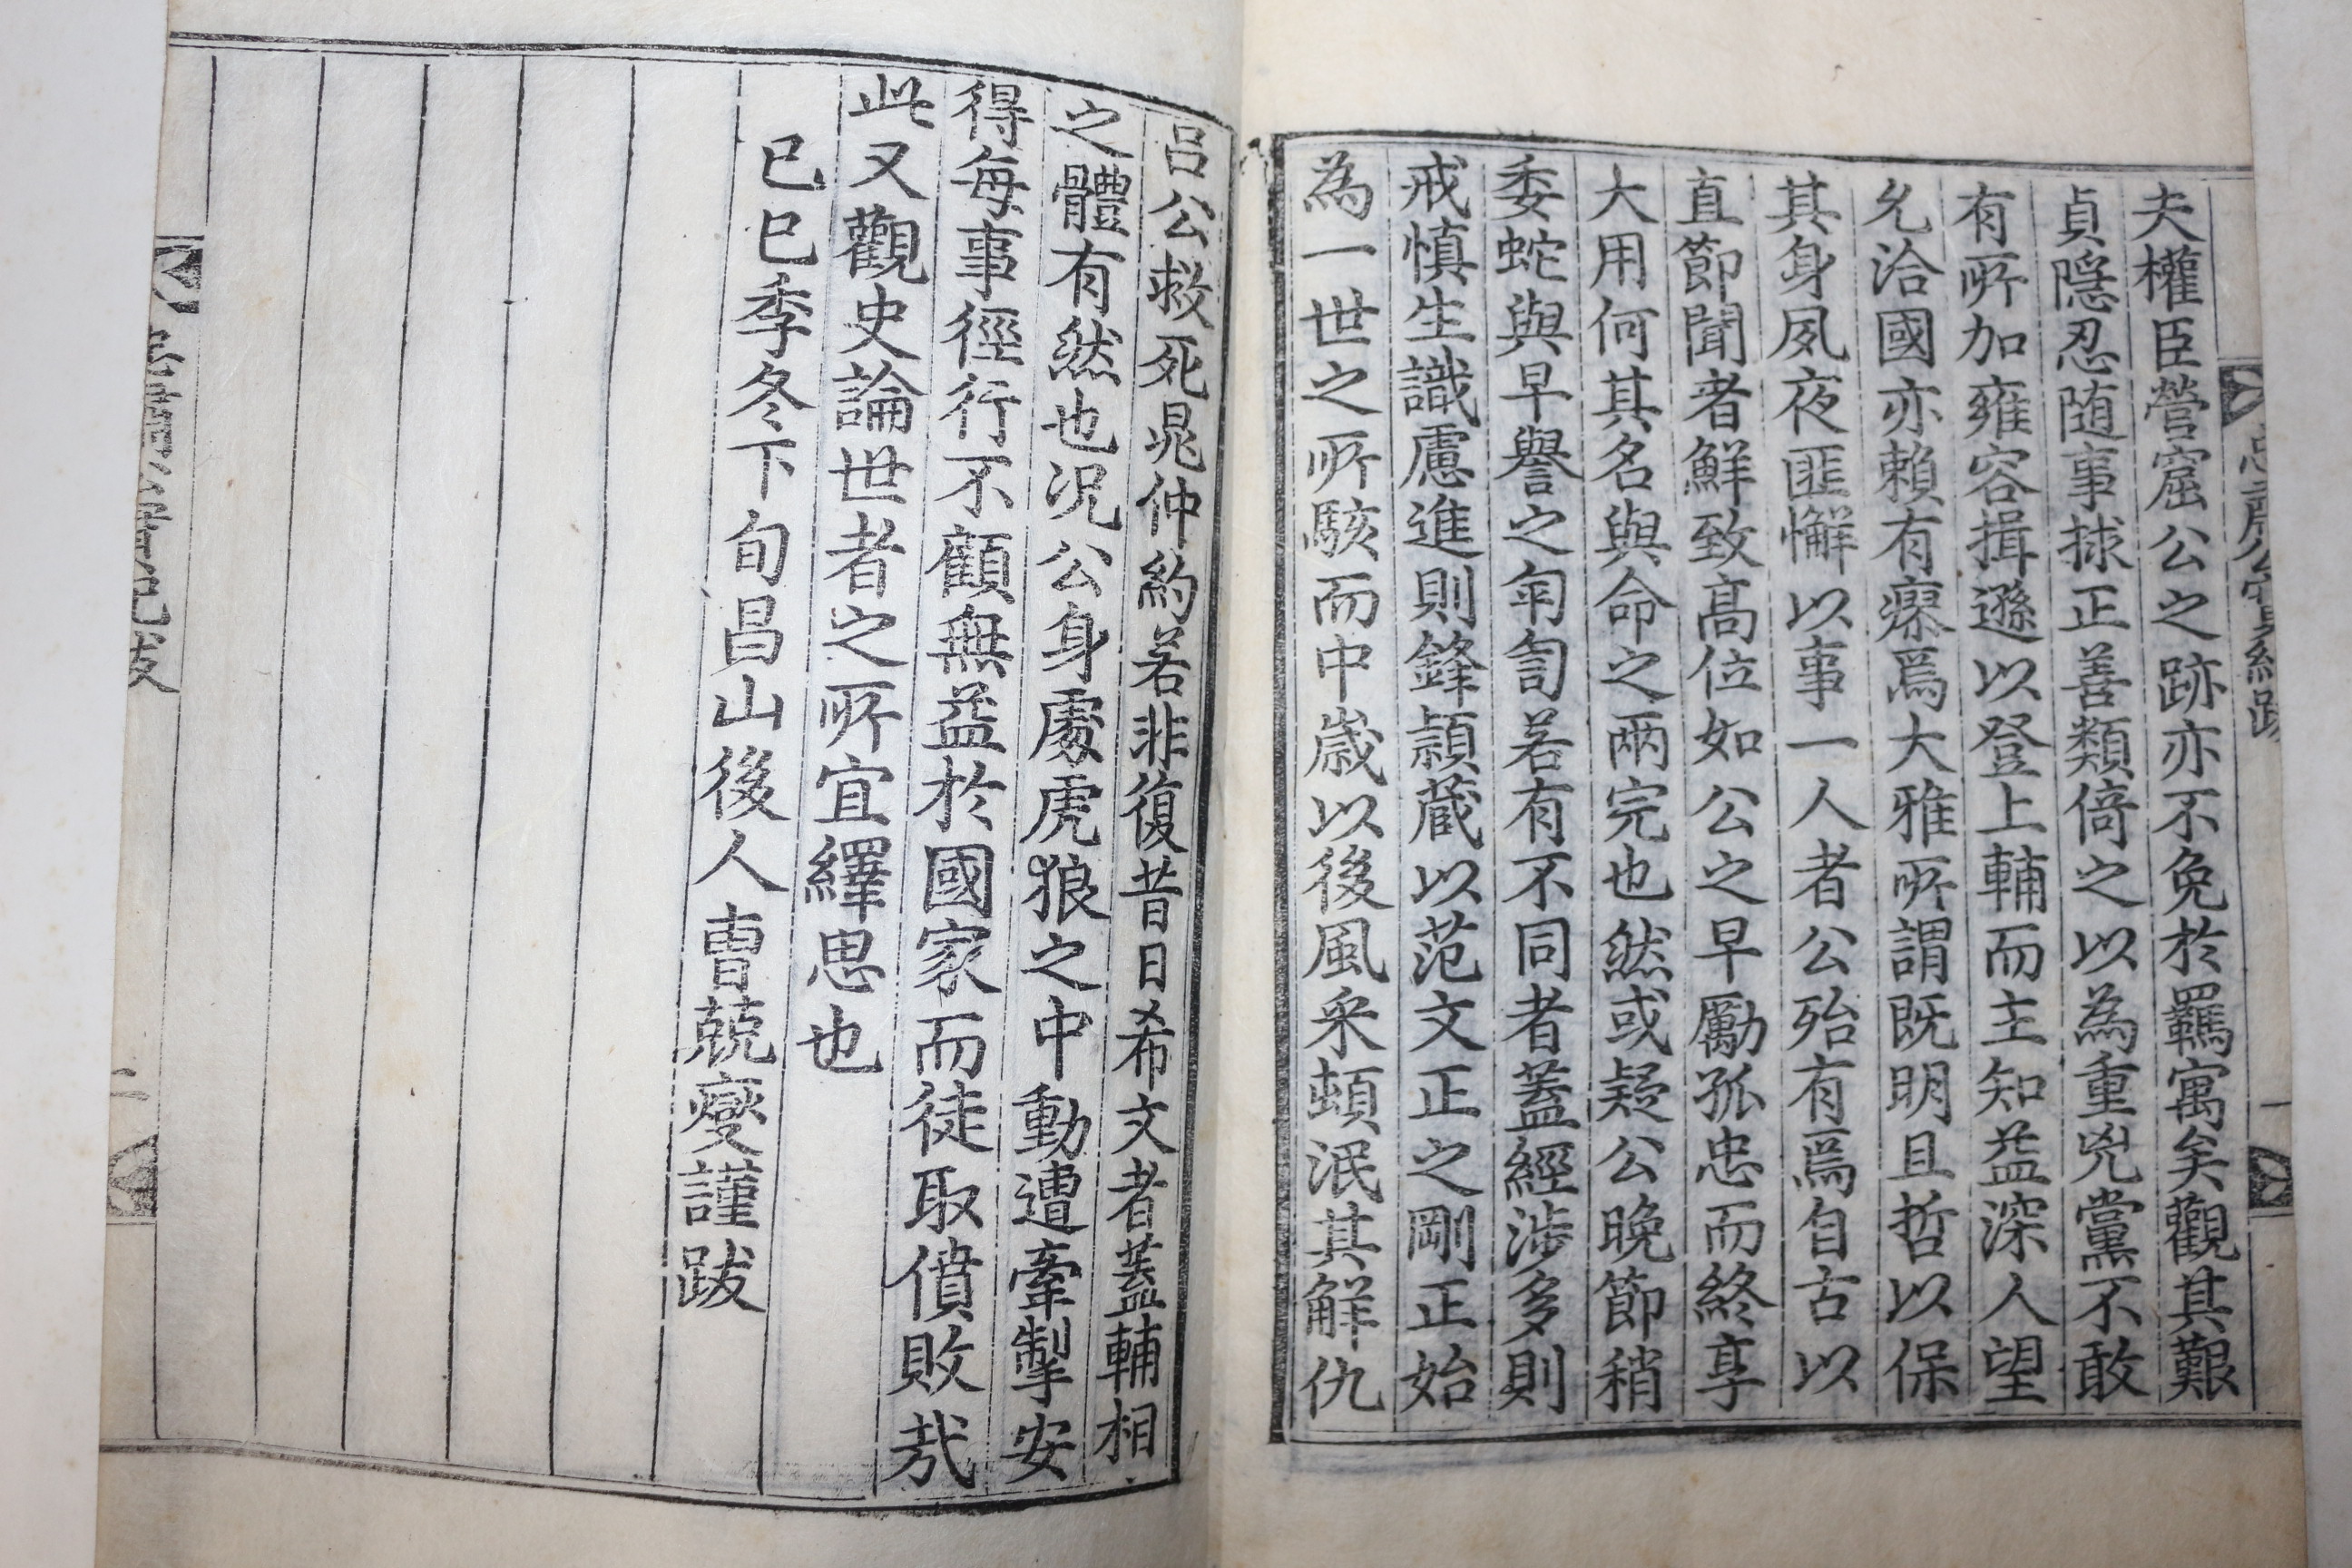 夫權臣營窟公之跡亦不免於羈寓矣觀其艱
貞隱忍随事捄正善類倚之以為重兇黨不敢
有所加雍容揖遜以登上輔而主知益深人望
允洽國亦賴有瘳焉大雅所謂既明且哲以保
其身夙夜匪懈以事一人者公殆有焉自古以
直節聞者鮮致高位如公之早勵孤忠而終享
大用何其名與命之兩完也然或疑公晚節稍
委蛇與早譽之訇訇若有不同者蓋經涉多則
戒慎生識慮進則鋒穎蔵以范文正之剛正始
為一世之所駭而中歲以後風采頓泯其解仇
呂公救死晁仲約若非復昔日希文者蓋輔相
之體有然也况公身處虎狼之中動遭牽掣安
得每事徑行不顧無益於國家而徒取僨敗㢤
此又觀史論世者之所宜繹思也
已巳季冬下旬昌山後人曺兢燮謹跋